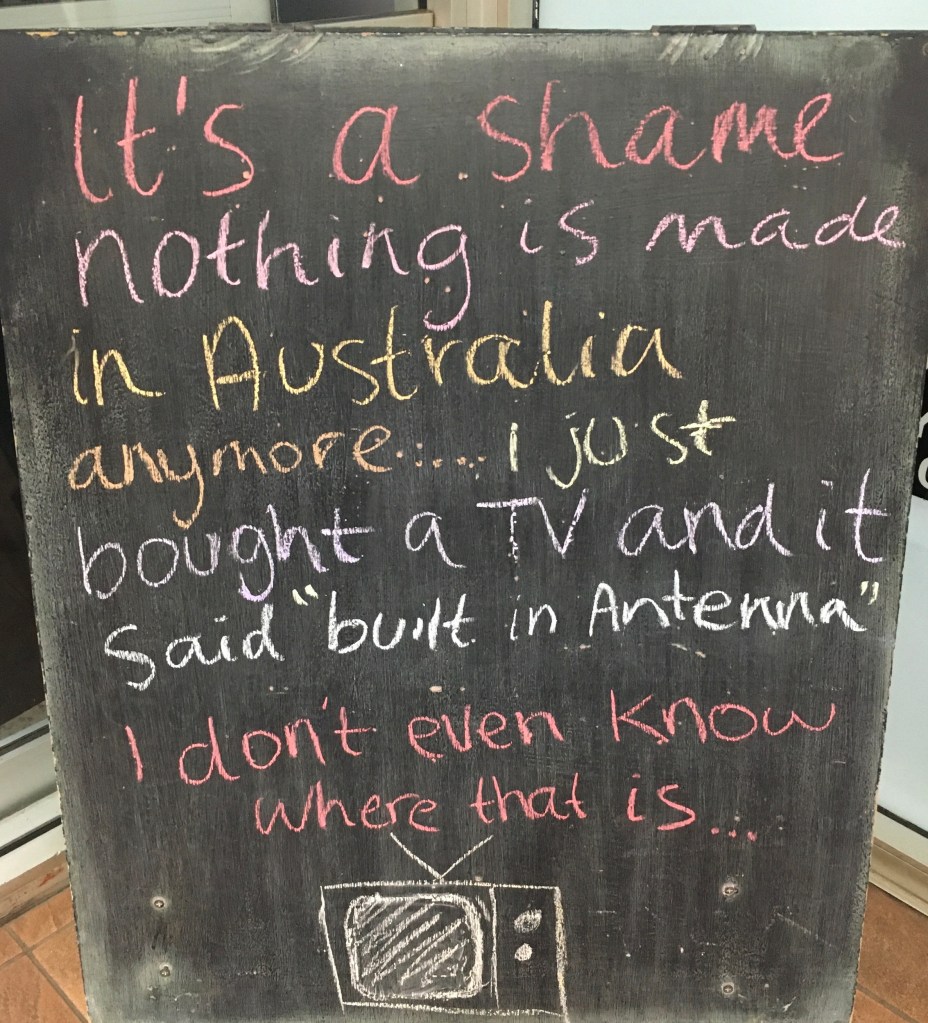 It's a shame
nothing is made
in Australia
anymore..... I just
bought a TV and it
Said "built in Antenna"
I don't even know
where that is...